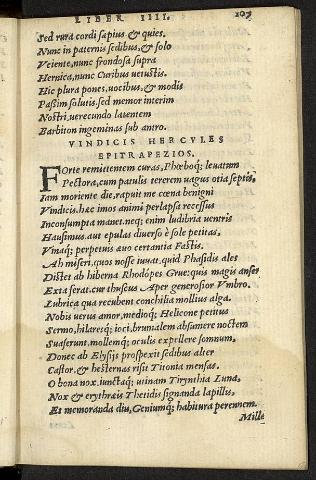 LIBER IIII. 105
Sed rura cordi sæpius & quies.
Nunc in paternis sedibus, & solo
Veiente, nunc frondosa supra
Hernica, nunc Curibus uetustis.
Hic plura pones, uocibus, & modis
Passim solutis, sed memor interim
Nostri, uerecundo latentem
Barbiton ingeminas sub antro.
VINDICIS HERCVLES
EPITRAPEZIOS.
FOrte remittentem curas, Phœboq́; leuatum
Pectora, cum patulis tererem uagus otia septis,
Iam moriente die, rapuit me cœna benigni
Vindicis. hæc imos animi perlapsa recessus
Inconsumpta manet. neq; enim ludibria uentris
Hausimus. aut epulas diuerso è sole petitas,
Vinaq́; perpetuis æuo certantia Fastis.
Ah miseri, quos nosse iuuat, quid Phasidis ales
Distet ab hiberna Rhodópes Grue: quis magis anser
Exta ferat. cur thuscus Aper generosior Vmbro.
Lubrica qua recubent conchilia mollius alga.
Nobis uerus amor, medioq́; Helicone petitus
Sermo, hilaresq́; ioci, brumalem absumere noctem
Suaserunt, mollemq́; oculis expellere somnum,
Donec ab Elysijs prospexit sedibus alter
Castor. & hesternas risit Titonia mensas.
O bona nox. iunctaq́; utinam Tirynthia Luna,
Nox & erythræis Thetidis signanda lapillis,
Et memoranda diu, Geniumq́; habitura perennem.
Mille